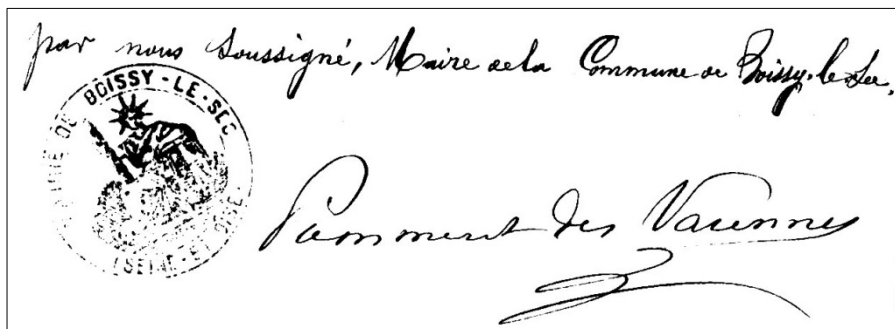 par nous soussigné, Maire de la Commune de Boissy-le-Sec,
MAIRIE DE BOISSY-LE-SEC
(SEINE-ET-OISE)
des Varennes